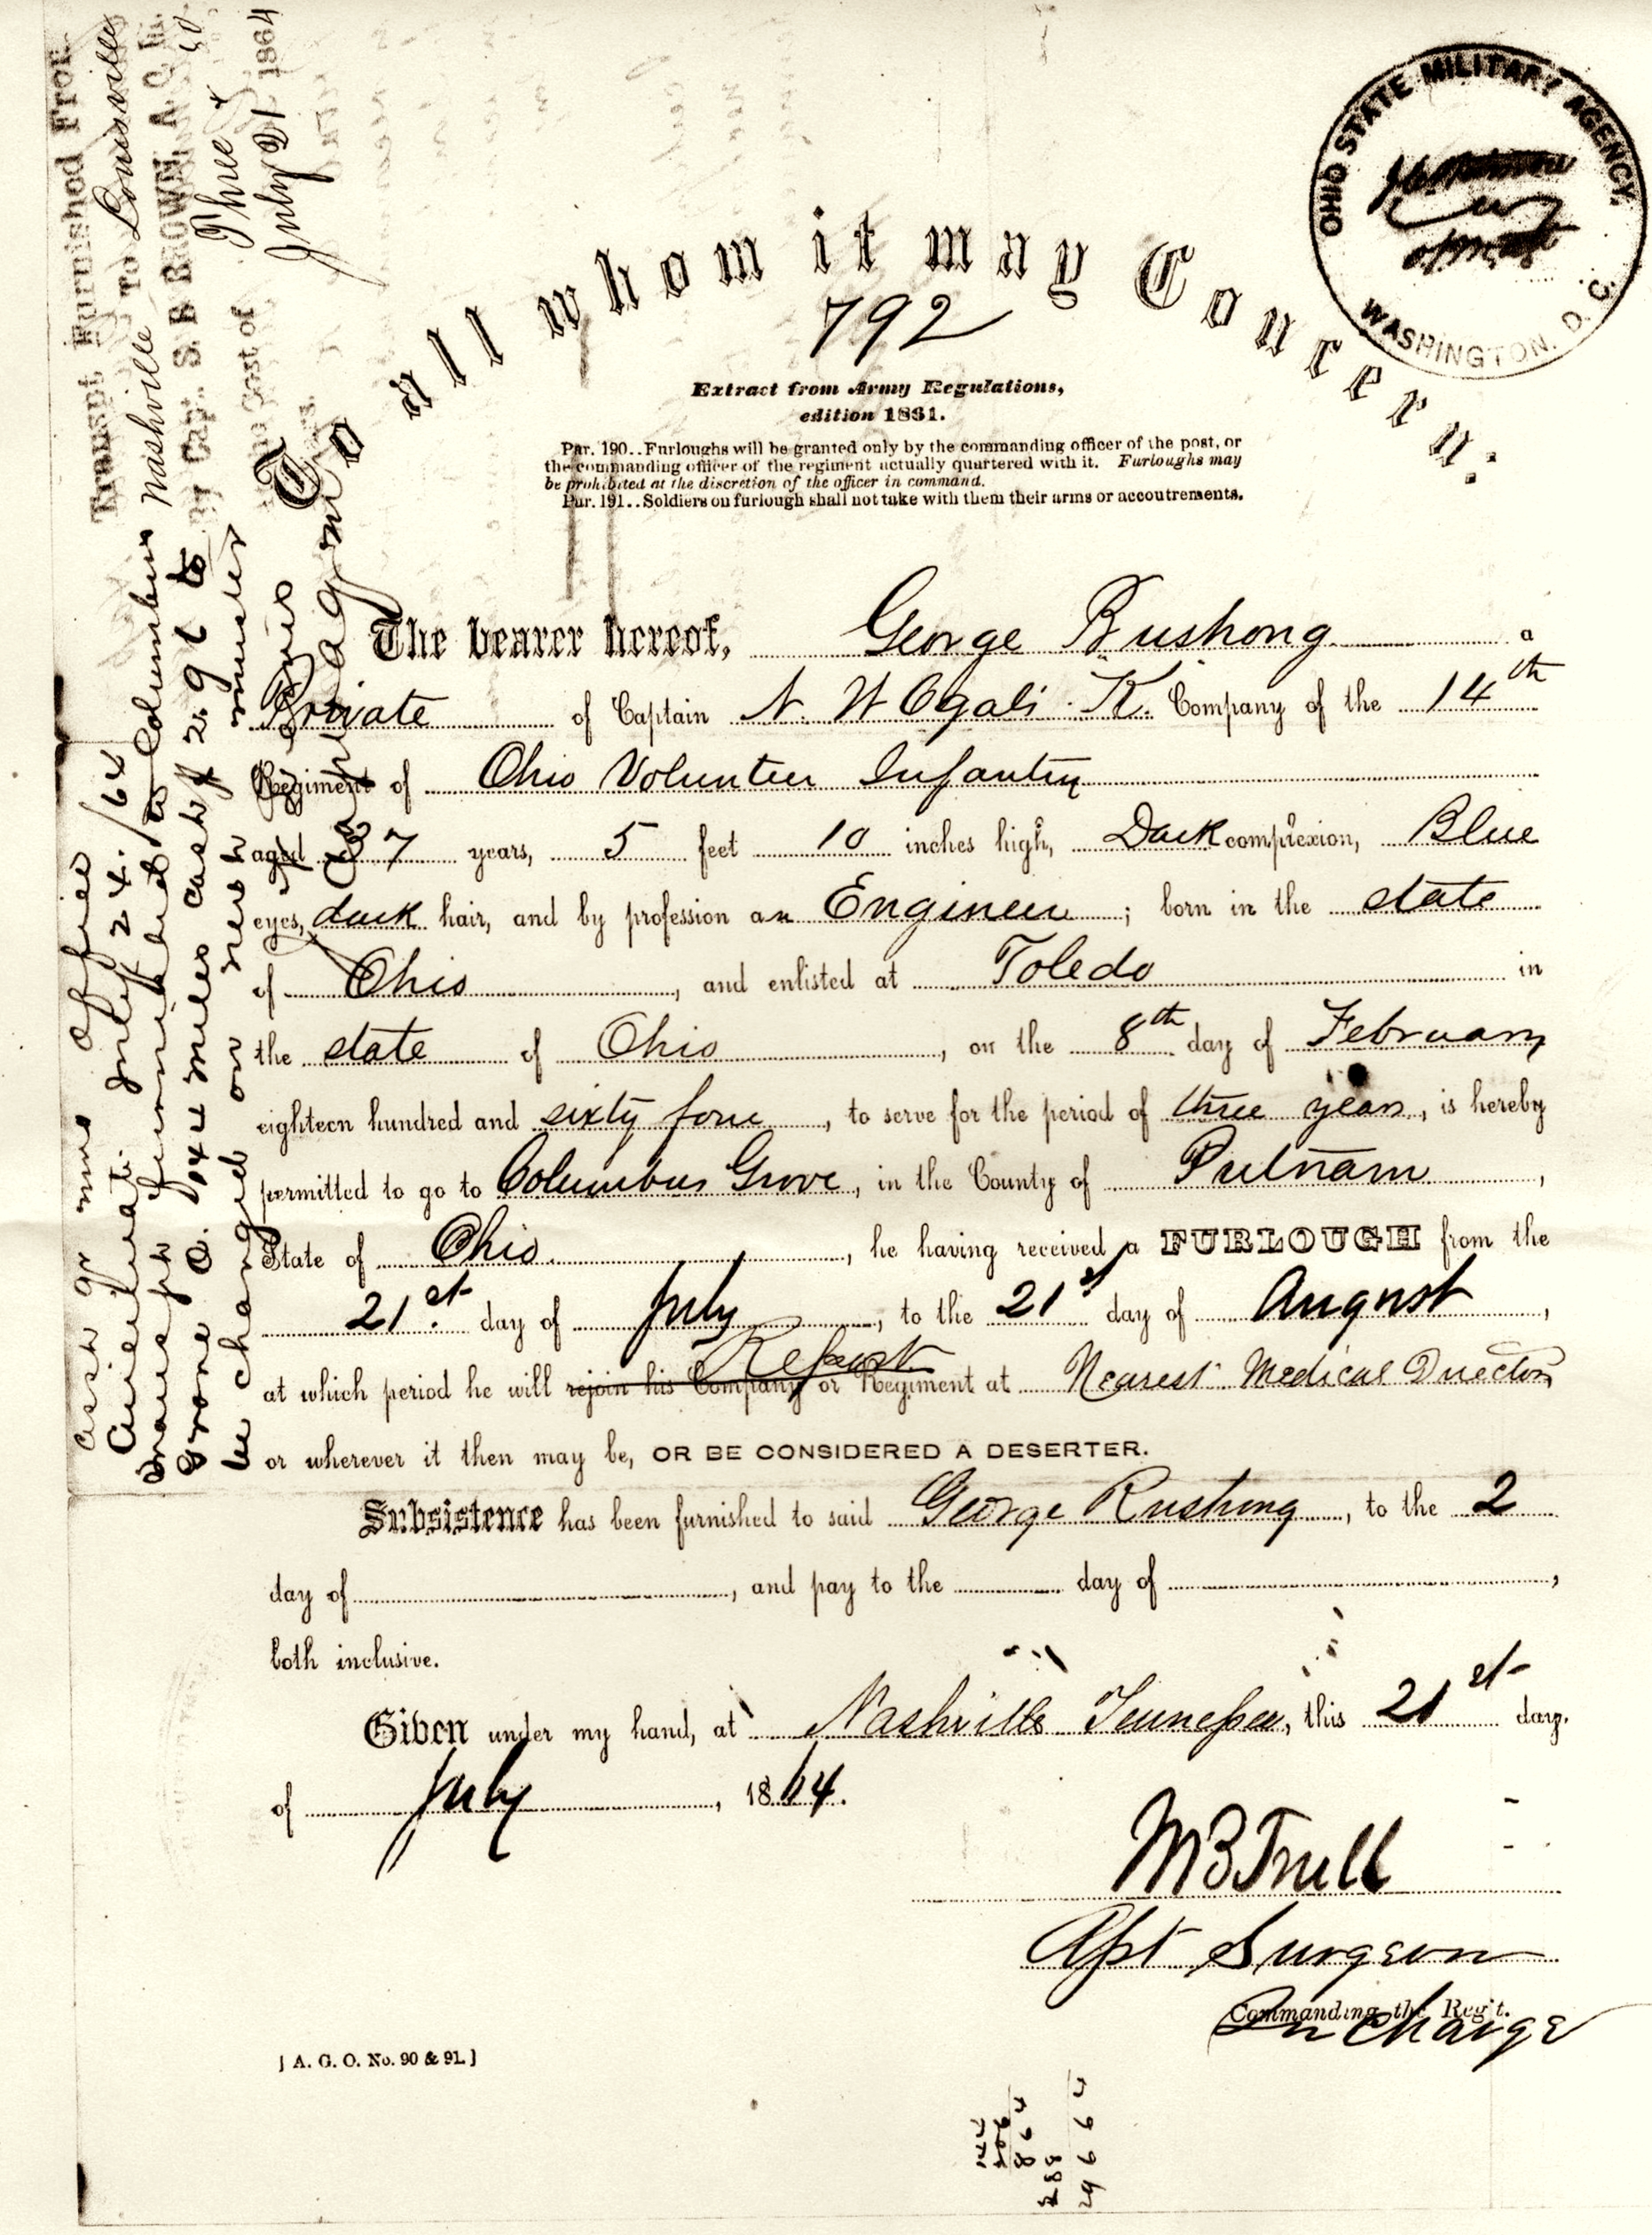 To all whom it may Concern:
792
OHIO STATE MILITARY AGENCY.
WASHINGTON. D. C.
Extract from Army Regulations,
edition 1861.
Par. 190..Furloughs will be granted only by the commanding officer of the post, or
the commanding officer of the regiment actually quartered with it. Furloughs may
be prohibited at the discretion of the officer in command.
Par. 191..Soldiers on furlough shall not take with them their arms or accoutrements.
The bearer hereof, George Rushong a
Private of Captain N. W Ogali K. Company of the 14th
Regiment of Ohio Volunteer Infantry
aged 37 years, 5 feet 10 inches high, Dark complexion, Blue
eyes, dark hair, and by profession an Engineer; born in the state
of Ohio, and enlisted at Toledo in
the state of Ohio, on the 8th day of February
eighteen hundred and sixty four, to serve for the period of three years, is hereby
permitted to go to Columbus Grove, in the County of Putnam,
State of Ohio, he having received a FURLOUGH from the
21st. day of July, to the 21st day of August,
Report
at which period he will rejoin his Company or Regiment at Nearest Medical Director
or wherever it then may be, OR BE CONSIDERED A DESERTER.
Subsistence has been furnished to said George Rushong, to the 2
day of, and pay to the day of,
both inclusive.
Given under my hand, at Nashville Tennessee, this 21st day.
of July, 1864.
M B Trull
Asst Surgeon
Commanding the Reg't.
In Charge
[A. G. O. No. 90 & 91.]
Transpt Furnished From
Nashville To Louisville
By Capt. S. B BROWN, A. Q. M.
Cost of Three
July 21 1864
Asst Qr Mrs Office
Cincinnati July 24./64
Transpn furnished to Columbus
Grove O. 144 miles cash $ 2.91 to
be charged on next muster